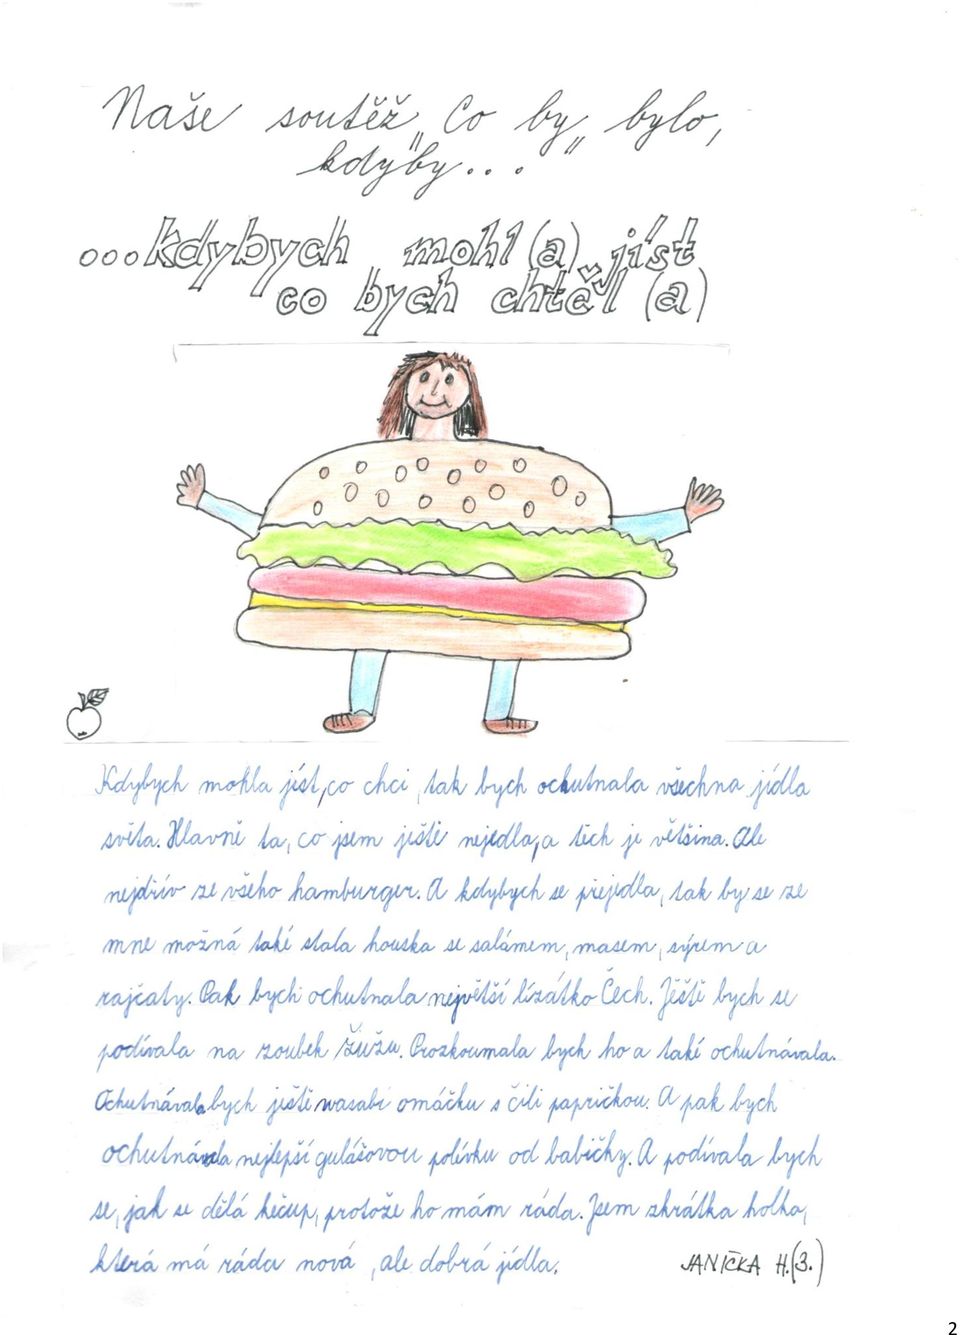 Naše soutěž „Co by" bylo,
kdyby...
...kdybych mohl(a) jíst
co bych chtěl(a)
Kdybych mohla jíst, co chci, tak bych ochutnala všechna jídla
světa. Hlavně ta, co jsem ještě nejedla, a těch je většina. Ale
nejdřív ze všeho hamburger. A kdybych se přejedla, tak by se ze
mne možná také stala houska se salámem, masem, sýrem a
rajčaty. Pak bych ochutnala největší lízátko Čech. Ještě bych se
podívala na zoubek žužu. Prozkoumala bych ho a také ochutnávala.
Ochutnávala bych ještě wasabi omáčku s čili papričkou. A pak bych
ochutnávala nejlepší gulášovou polívku od babičky. A podívala bych
se, jak se dělá kečup, protože ho mám ráda. Jsem zkrátka holka,
která má ráda nová, ale dobrá jídla.
JANIČKA H.(3.)
2